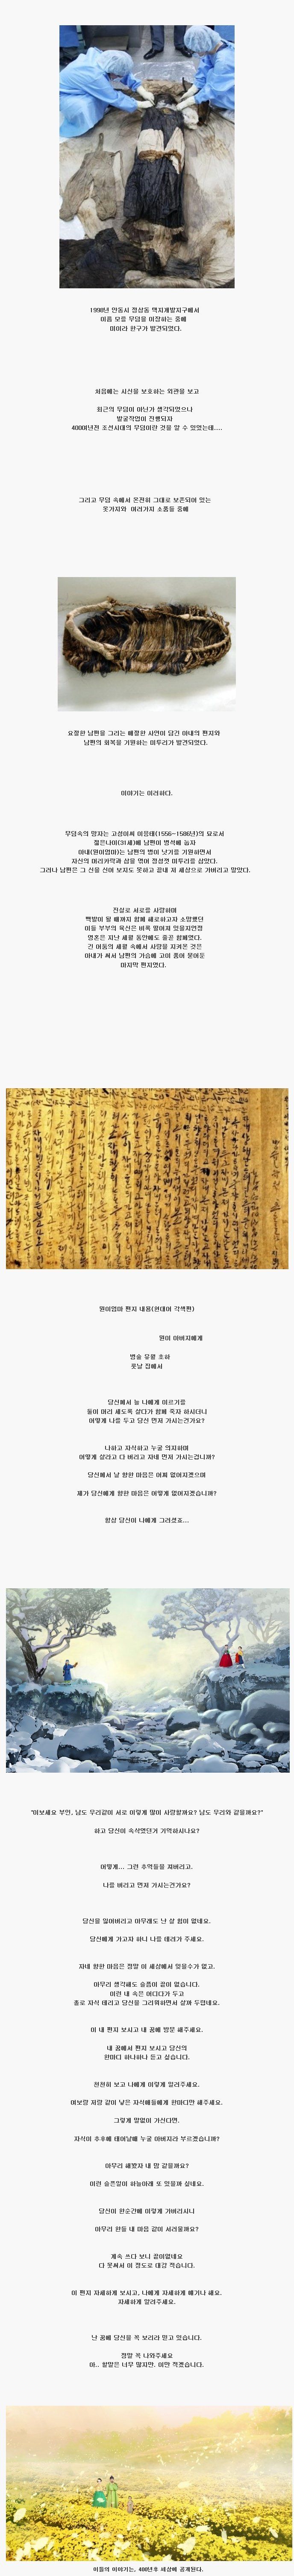 1998년 안동시 정상동 택지개발지구에서
이름 모를 무덤을 이장하는 중에
미이라 한구가 발견되었다.
처음에는 시신을 보호하는 외관을 보고
최근의 무덤이 아닌가 생각되었으나
발굴작업이 진행되자
400여년전 조선시대의 무덤이란 것을 알 수 있었는데....
그리고 무덤 속에서 온전히 그대로 보존되어 있는
옷가지와 여러가지 소품들 중에
요절한 남편을 그리는 애절한 사연이 담긴 아내의 편지와
남편의 회복을 기원하는 미투리가 발견되었다.
이야기는 이러하다.
무덤속의 망자는 고성이씨 이응태(1556~1586년)의 묘로서
젊은나이(31세)에 남편이 병석에 눕자
아내(원이엄마)는 남편의 병이 낫기를 기원하면서
자신의 머리카락과 삼을 엮어 정성껏 미투리를 삼았다.
그러나 남편은 그 신을 신어 보지도 못하고 끝내 저 세상으로 가버리고 말았다.
진실로 서로를 사랑하며
백발이 될 때까지 함께 해로하고자 소망했던
이들 부부의 육신은 비록 떨어져 있을지언정
영혼은 지난 세월 동안에도 줄곧 함께였다.
긴 어둠의 세월 속에서 사랑을 지켜온 것은
아내가 써서 남편의 가슴에 고이 품어 묻어둔
마지막 편지였다.
원이엄마 편지 내용(현대어 각색판)
원이 아버지에게
병술 유월 초하
룻날 집에서
당신께서 늘 나에게 이르기를
둘이 머리 세도록 살다가 함께 죽자 하시더니
어떻게 나를 두고 당신 먼저 가시는건가요?
나하고 자식하고 누굴 의지하며
어떻게 살라고 다 버리고 자네 먼저 가시는겁니까?
당신께서 날 향한 마음은 어찌 없어지겠으며
제가 당신에게 향한 마음은 어떻게 없어지겠습니까?
항상 당신이 나에게 그러셨죠...
"여보세요 부인, 남도 우리같이 서로 이렇게 많이 사랑할까요? 남도 우리와 같을까요?"
하고 당신이 속삭였던거 기억하시나요?
어떻게... 그런 추억들을 져버리고.
나를 버리고 먼저 가시는건가요?
당신을 잃어버리고 아무래도 난 살 힘이 없네요.
당신에게 가고자 하니 나를 데려가 주세요.
자네 향한 마음은 정말 이 세상에서 잊을수가 없고.
아무리 생각해도 슬픔이 끝이 없습니다.
이런 내 속은 어디다가 두고
홀로 자식 데리고 당신을 그리워하면서 살까 두렵네요.
이 내 편지 보시고 내 꿈에 방문 해주세요.
내 꿈에서 편지 보시고 당신의
한마디 하나하나 듣고 싶습니다.
천천히 보고 나에게 이렇게 알려주세요.
여보랑 저랑 같이 낳은 자식에들에게 한마디만 해주세요.
그렇게 말없이 가신다면.
자식이 추후에 태어날때 누굴 아버지라 부르겠습니까?
아무리 해봤자 내 맘 같을까요?
이런 슬픈일이 하늘아래 또 있을까 싶네요.
당신이 한순간에 이렇게 가버리시니
아무리 한들 내 마음 같이 서러울까요?
계속 쓰다 보니 끝이없네요
다 못써서 이 정도로 대강 적습니다.
이 편지 자세하게 보시고, 나에게 자세하게 얘기나 해요.
자세하게 알려주세요.
난 꿈에 당신을 꼭 보리라 믿고 있습니다.
정말 꼭 나와주세요
아.. 할말은 너무 많지만. 이만 적겠습니다.
이들의 이야기는, 400년후 세상에 공개된다.